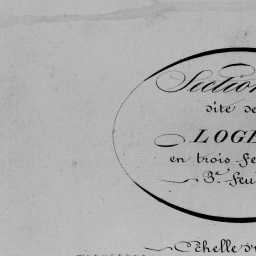 Section
dite de
LOGE
en trois Fe
3.e Feu
Echelle d